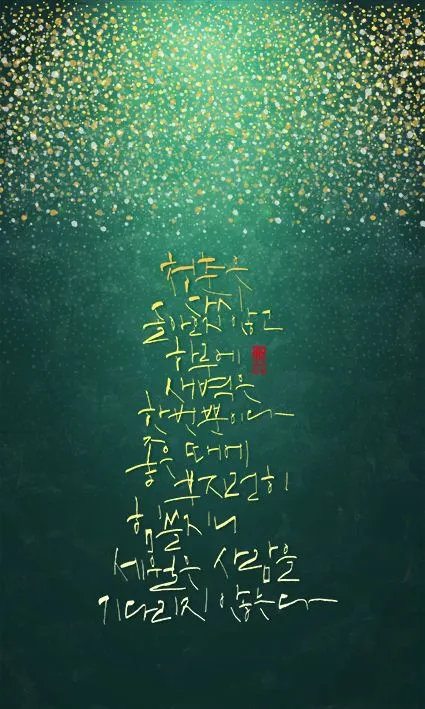 청춘은
다시
돌아오지 않고
하루에
새벽은
한번뿐이다
좋은 때에
부지런히
힘쓸지니
세월은 사람을
기다리지 않는다